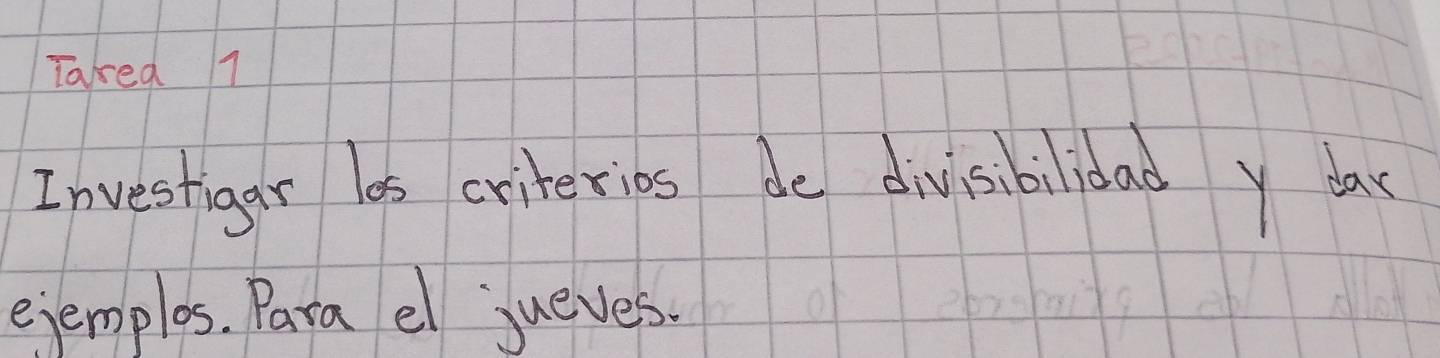 Tarea 1
Investigar los criterios de divisibilidad y dar
ejemplos. Para el jueves.